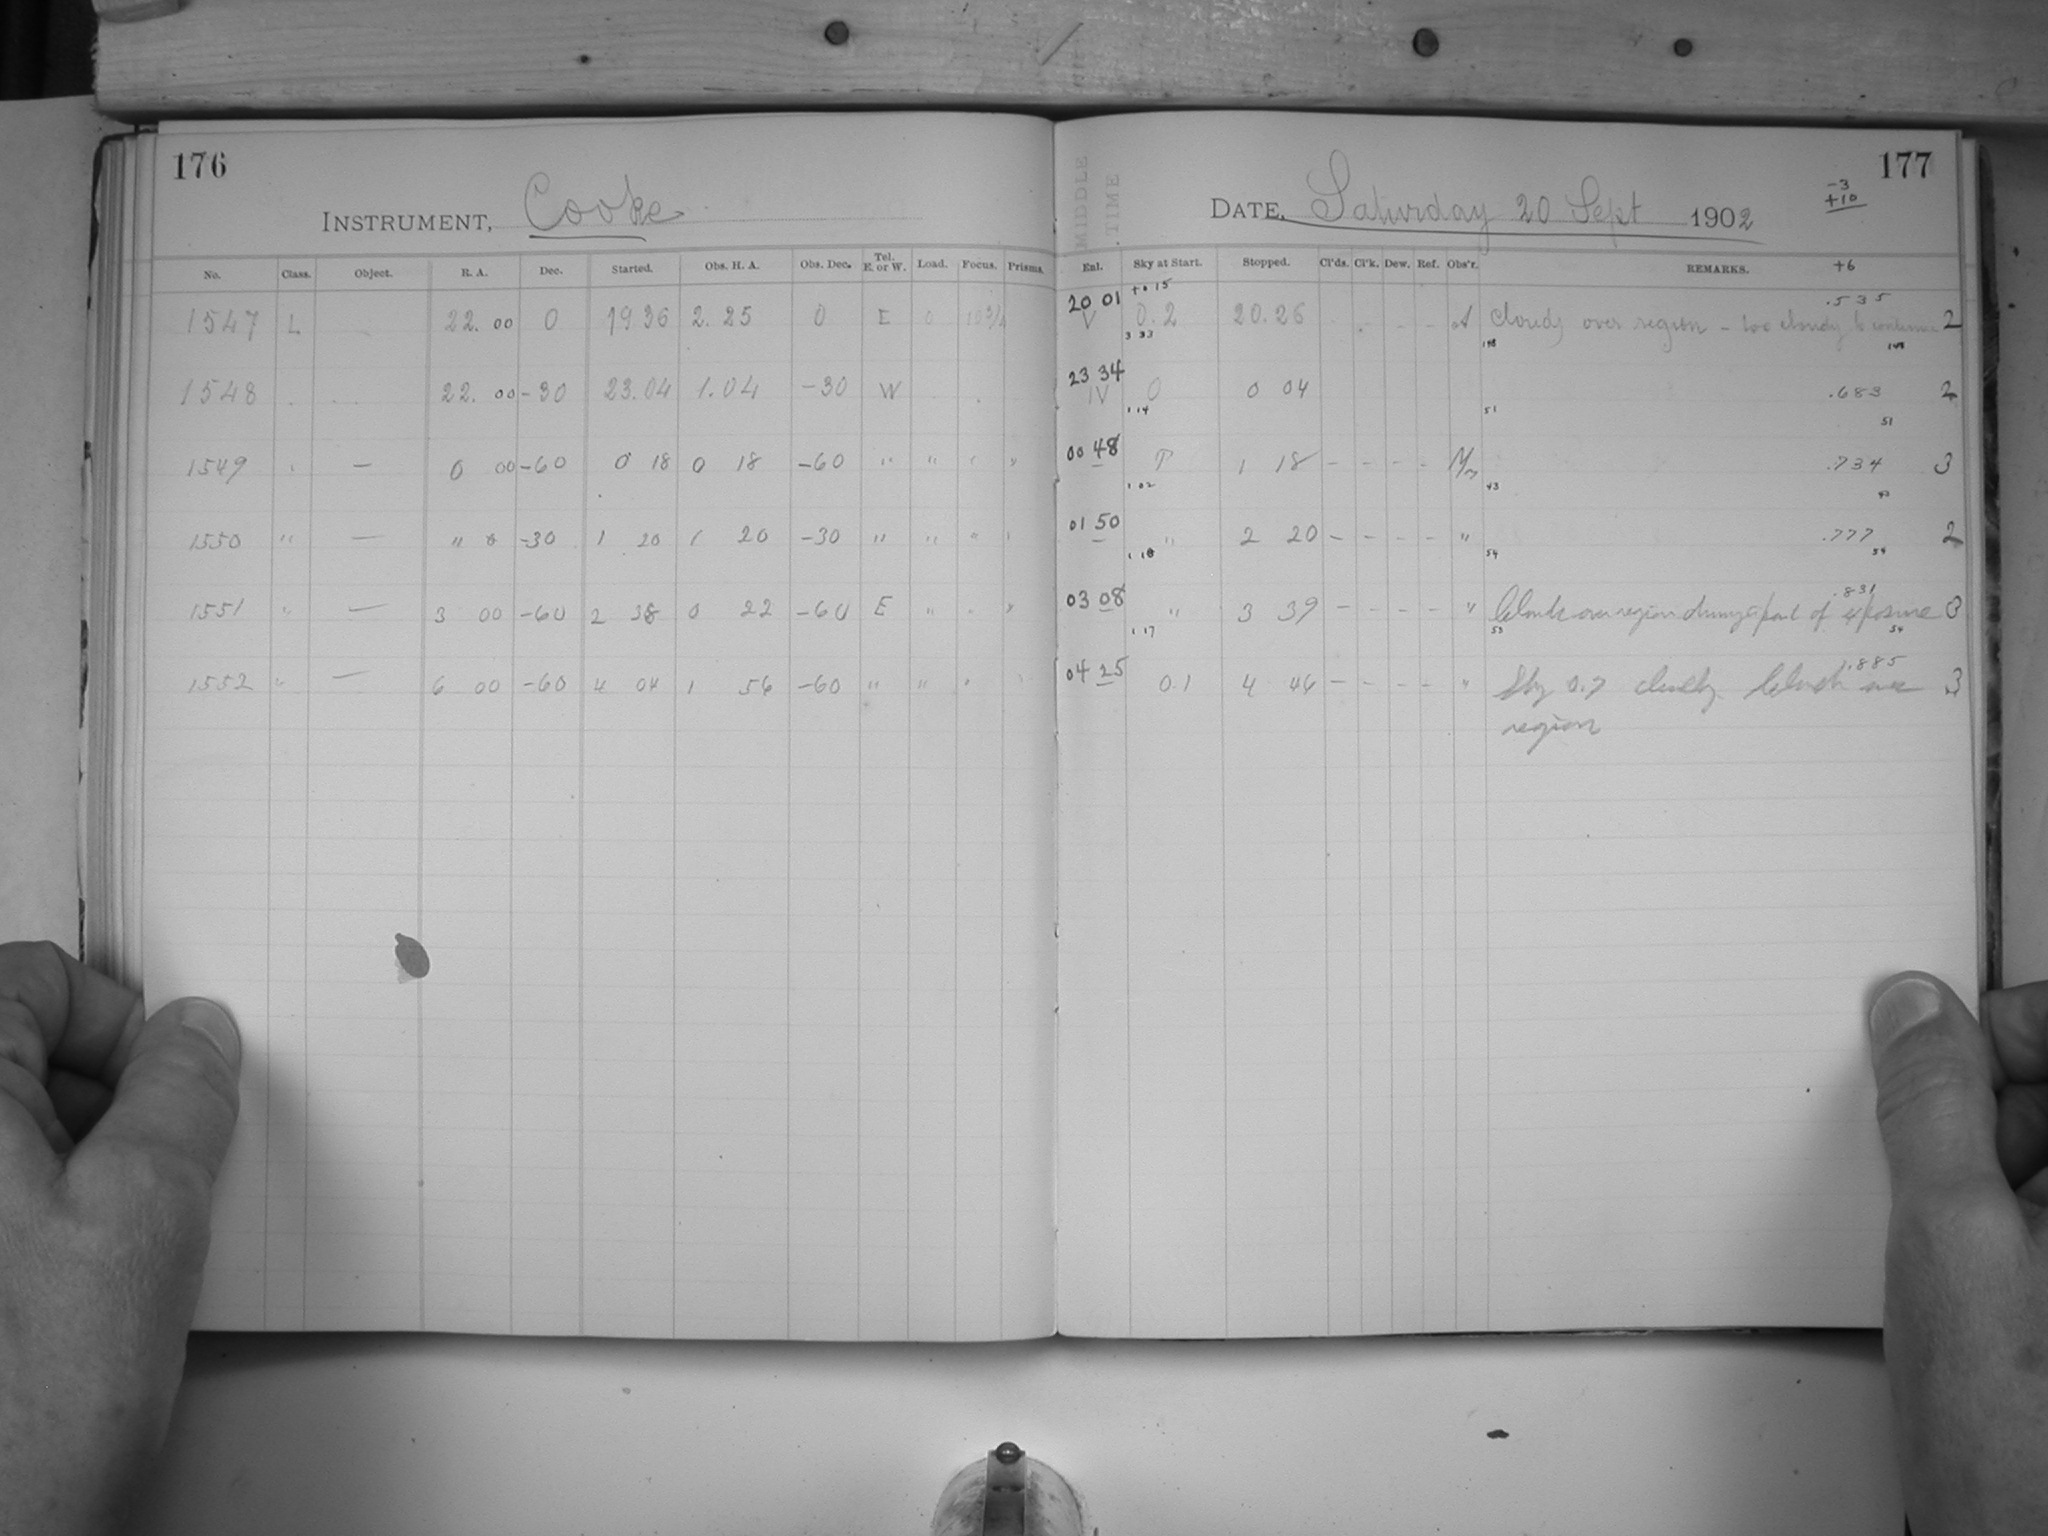 176
INSTRUMENT, Cooke
No. Class. Object. R. A. Dec. Started. Obs. H. A. Obs. Dec. Tel. E. or W. Load. Focus. Prisms.
1547 L 22. 00 0 19 36 2. 25 0 E 0
1548 22. 00 -30 23.04 1.04 -30 W
1549 — 0 00 -60 0 18 0 18 -60 " "
1550 " — " -30 1 20 1 20 -30 " " "
1551 " — 3 00 -60 2 38 0 22 -60 E " "
1552 " — 6 00 -60 4 04 1 56 -60 " " "
MIDDLE TIME
DATE, Saturday 20 Sept 1902
-3
+10
177
Enl. Sky at Start. Stopped. Cl'ds. Cl'k. Dew. Ref. Obs'r. REMARKS. +6
20 01 +0 15 .535
V 0.2 20.26 clouds over region - too cloudy to continue 2
3 33 148 149
23 34
IV 0 0 04 .683 2
1 14 51 51
00 48 P 1 18 - - - - .734 3
1 02 43
01 50 " 2 20 - - - - " .777 2
1 18 54 54
03 08 " 3 39 - - - - " Clouds over region during part of exposure .831 3
1 17 53 54
04 25 0.1 4 46 - - - - " Sky 0.7 cloudy. Clouds over .885 3
region